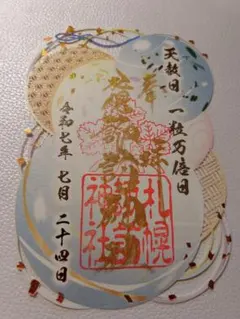 天赦日 一粒万倍日
奉拝
札幌
諏訪
神社
令和七年 七月 二十四日